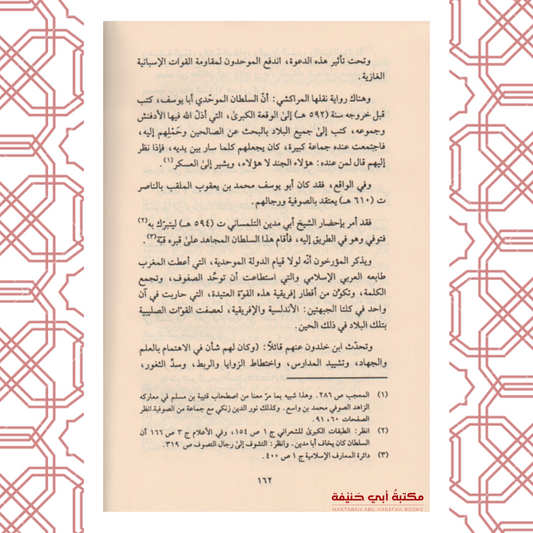 وتحت تأثير هذه الدعوة، اندفع الموحدون لمقاومة القوات الإسبانية
الغازية.
وهناك رواية نقلها المراكشي: أنّ السلطان الموحّدي أبا يوسف، كتب
قبل خروجه سنة (٥٩٢ هـ) إلى الوقعة الكبرى، التي أذلّ الله فيها الأدفنش
وجموعه، كتب إلى جميع البلاد بالبحث عن الصالحين وحَمْلِهم إليه،
فاجتمعت عنده جماعة كبيرة، كان يجعلهم كلما سار بين يديه، فإذا نظر
إليهم قال لمن عنده: هؤلاء الجند لا هؤلاء، ويشير إلى العسكر(١).
وفي الواقع، فقد كان أبو يوسف محمد بن يعقوب الملقب بالناصر
ت (٦١٠ هـ) يعتقد بالصوفية ورجالهم.
فقد أمر بإحضار الشيخ أبي مدين التلمساني ت (٥٩٤ هـ) ليتبرّك به(٢)
فتوفي وهو في الطريق إليه، فأقام هذا السلطان المجاهد على قبره قبّة(٣).
ويذكر المؤرخون أنّه لولا قيام الدولة الموحدية، التي أعطت المغرب
طابعه العربي الإسلامي والتي استطاعت أن توحِّد الصفوف، وتجمع
الكلمة، وتكوِّن من أقطار إفريقية هذه القوّة العتيدة، التي حاربت في آن
واحد في كلتا الجبهتين: الأندلسية والإفريقية، لعصفت القوّات الصليبية
بتلك البلاد في ذلك الحين.
وتحدّث ابن خلدون عنهم قائلاً: (وكان لهم شأن في الاهتمام بالعلم
والجهاد، وتشييد المدارس، واختطاط الزوايا والربط، وسدِّ الثغور،
(١) المعجب ص ٢٨٦. وهذا شبيه بما مرّ معنا من اصطحاب قتيبة بن مسلم في معاركه
الزاهد الصوفي محمد بن واسع. وكذلك نور الدين زنكي مع جماعة من الصوفية.انظر
الصفحات ٦٠، ٩١.
(٢) انظر: الطبقات الكبرى للشعراني ج ١ ص ١٥٤، وفي الأعلام ج ٣ ص ١٦٦ أن
السلطان كان يخاف أبا مدين. وانظر: التشوف إلى رجال التصوف ص ٣١٩.
(٣) دائرة المعارف الإسلامية ج ١ ص ٤٠٠.
١٦٢
مكتبة أبي حنيفة
MAKTABAH ABU HANEFAH BOOKS